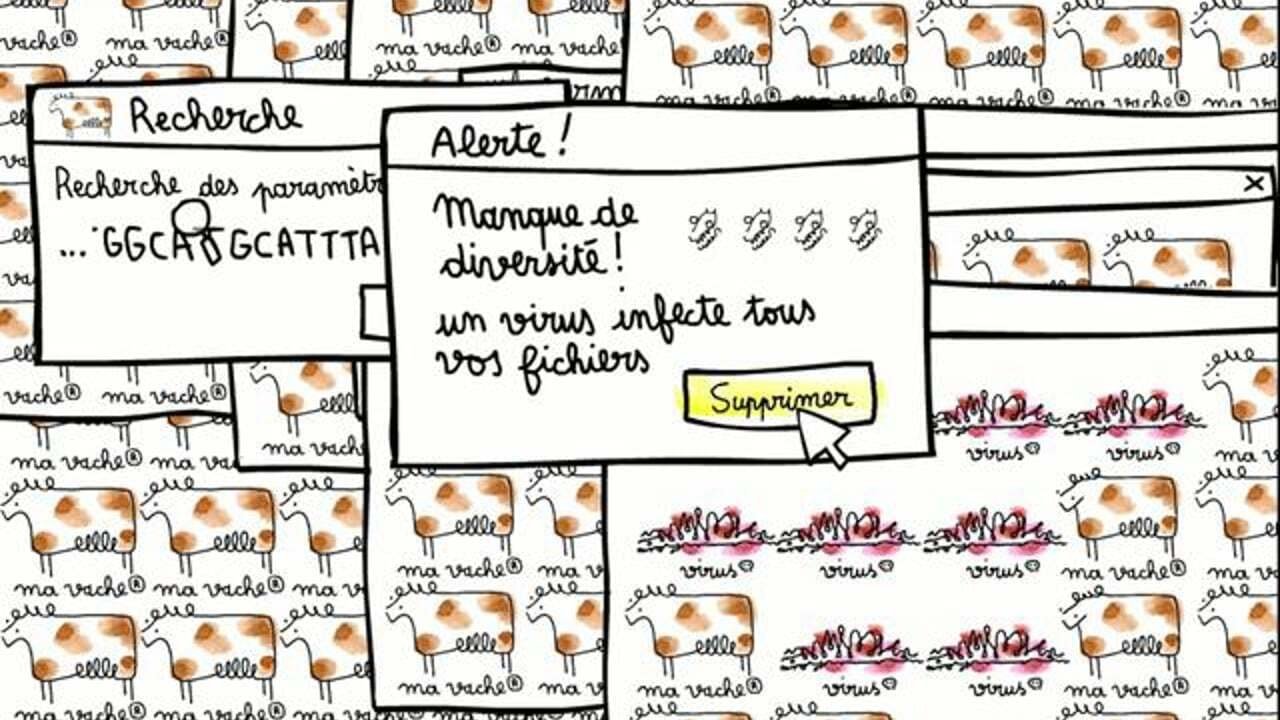 ma vache® ma vache® ma vache® ma vache
Recherche
Recherche des paramètr
... GGCATGCATTTA
Alerte !
Manque de
diversité !
un virus infecte tous
vos fichiers
Supprimer
ma vache
virus virus
ma vache® ma va ma vache
virus virus virus ma vache®
ma vache® ma vache® ma vache® ma vache®
ma vache® virus virus ma vache®
ma vache® ma vache® ma vache®